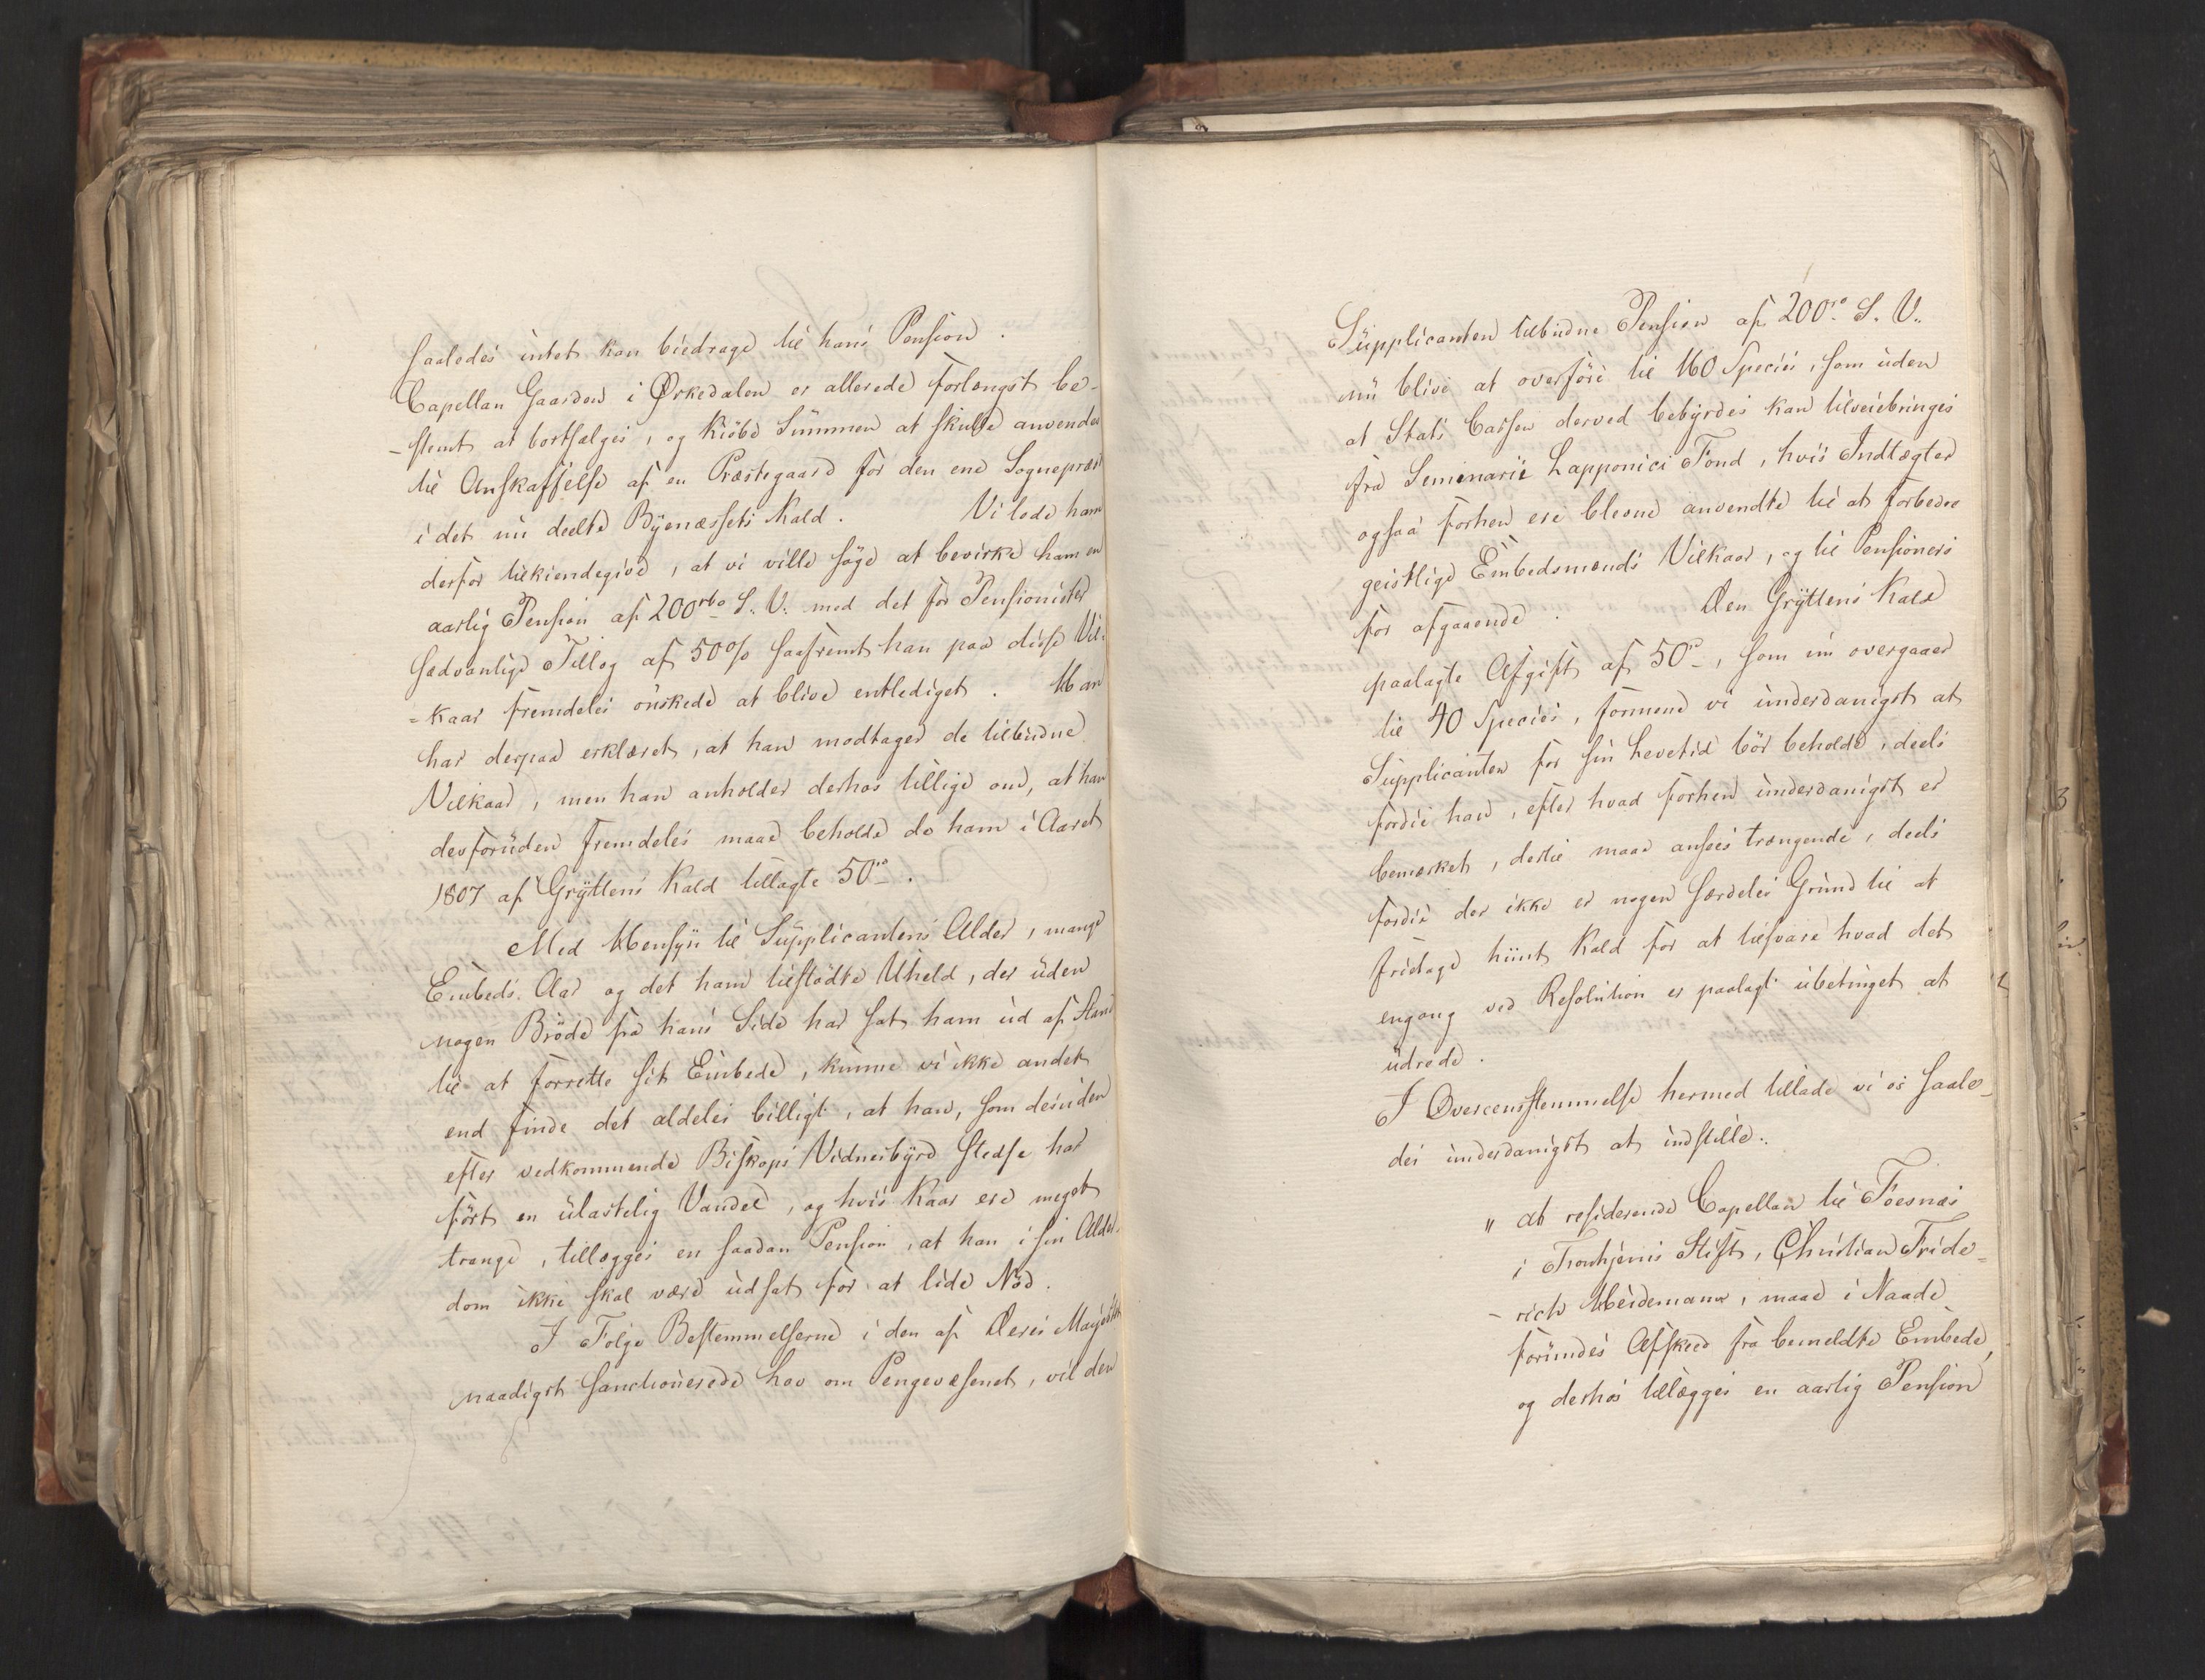 saaledes intet kan bidrage til hans Pension.
Capellan Gaarden i Ørkedalen er allerede forlængst be-
-stemt at bortsælges, og Kiøbe Summen at skulle anvendes
til Anskaffelse af en Præstegaard for den ene Sognepræst
i det nu deelte Bÿenæssets Kald. Vi lode ham
derfor tilkiendegive, at vi vilde søge at bevirke ham en
aarlig Pension af 200 rbd S. V. med det for Pensionister
sædvanlige Tillæg af 50% saafremt han paa disse Vil-
=kaar fremdeles ønskede at blive entlediget. Han
har derpaa erklæret, at han modtager de tilbudne
Vilkaar, men han anholder derhos tillige om, at han
desforuden fremdeles maae beholde de ham i Aaret
1807 af Grÿttens Kald tillagte 50 rd.
Med Hensÿn til Supplicantens Alder, mange
Embeds Aar og det ham tilstødte Uheld, der uden
nogen Brøde fra hans Side har sat ham ud af Stand
til at forrette sit Embede, kunne vi ikke andet
end finde det aldeles billigt, at han, som desuden
efter vedkommende Biskops Vidnesbÿrd stedse har
ført en ulastelig Vandel, og hvis Kaar ere meget
trange, tillægges en saadan Pension, at han i sin Alder-
dom ikke skal være udsat for at lide Nød.
I Følge Bestemmelserne i den af Deres Majestæt
naadigst sanctionerede Lov om Pengevæsenet, vil den
Supplicanten tilbudne Pension af 200 rd S. V.
nu blive at overføre til 160 Species, som uden
at Stats Cassen derved bebyrdes kan tilveiebringes
fra Seminarii Lapponici Fond, hvis Indtægter
ogsaa forhen ere blevne anvendte til at forbedre
geistlige Embedsmænds Vilkaar, og til Pensioners
for afgaaende. Den Grÿttens Kald
paalagte Afgift af 50 rd, som nu overgaaer
til 40 Species, formene vi underdanigst at
Supplicanten for sin Levetid bör beholde, deels
fordi han, efter hvad forhen underdanigst er
bemærket, dertil maae ansees trængende, deels
fordi der ikke er nogen særdeles Grund til at
fritage hiint Kald for at tilsvare hvad det
engang ved Resolution er paalagt ubetinget at
udrede.
I Overeensstemmelse hermed tillade vi os saale-
des underdanigst at indstille:
" at residerende Capellan til Foesnæs
i Tronhjems Stift, Christian Fride-
-rich Heidemann, maae i Naade
forundes Afskeed fra bemeldte Embede,
og derhos tillægges en aarlig Pension